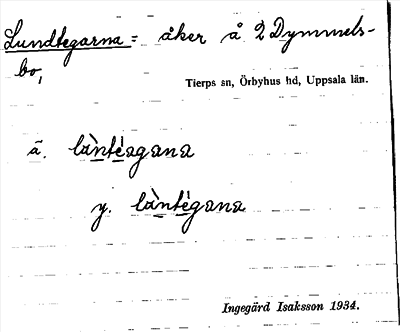 Lundtegarna = åker å 2 Dymmels-
bo,
Tierps sn, Örbyhus hd, Uppsala län.
ä. làntéagana
y. làntégana
Ingegärd Isaksson 1934.